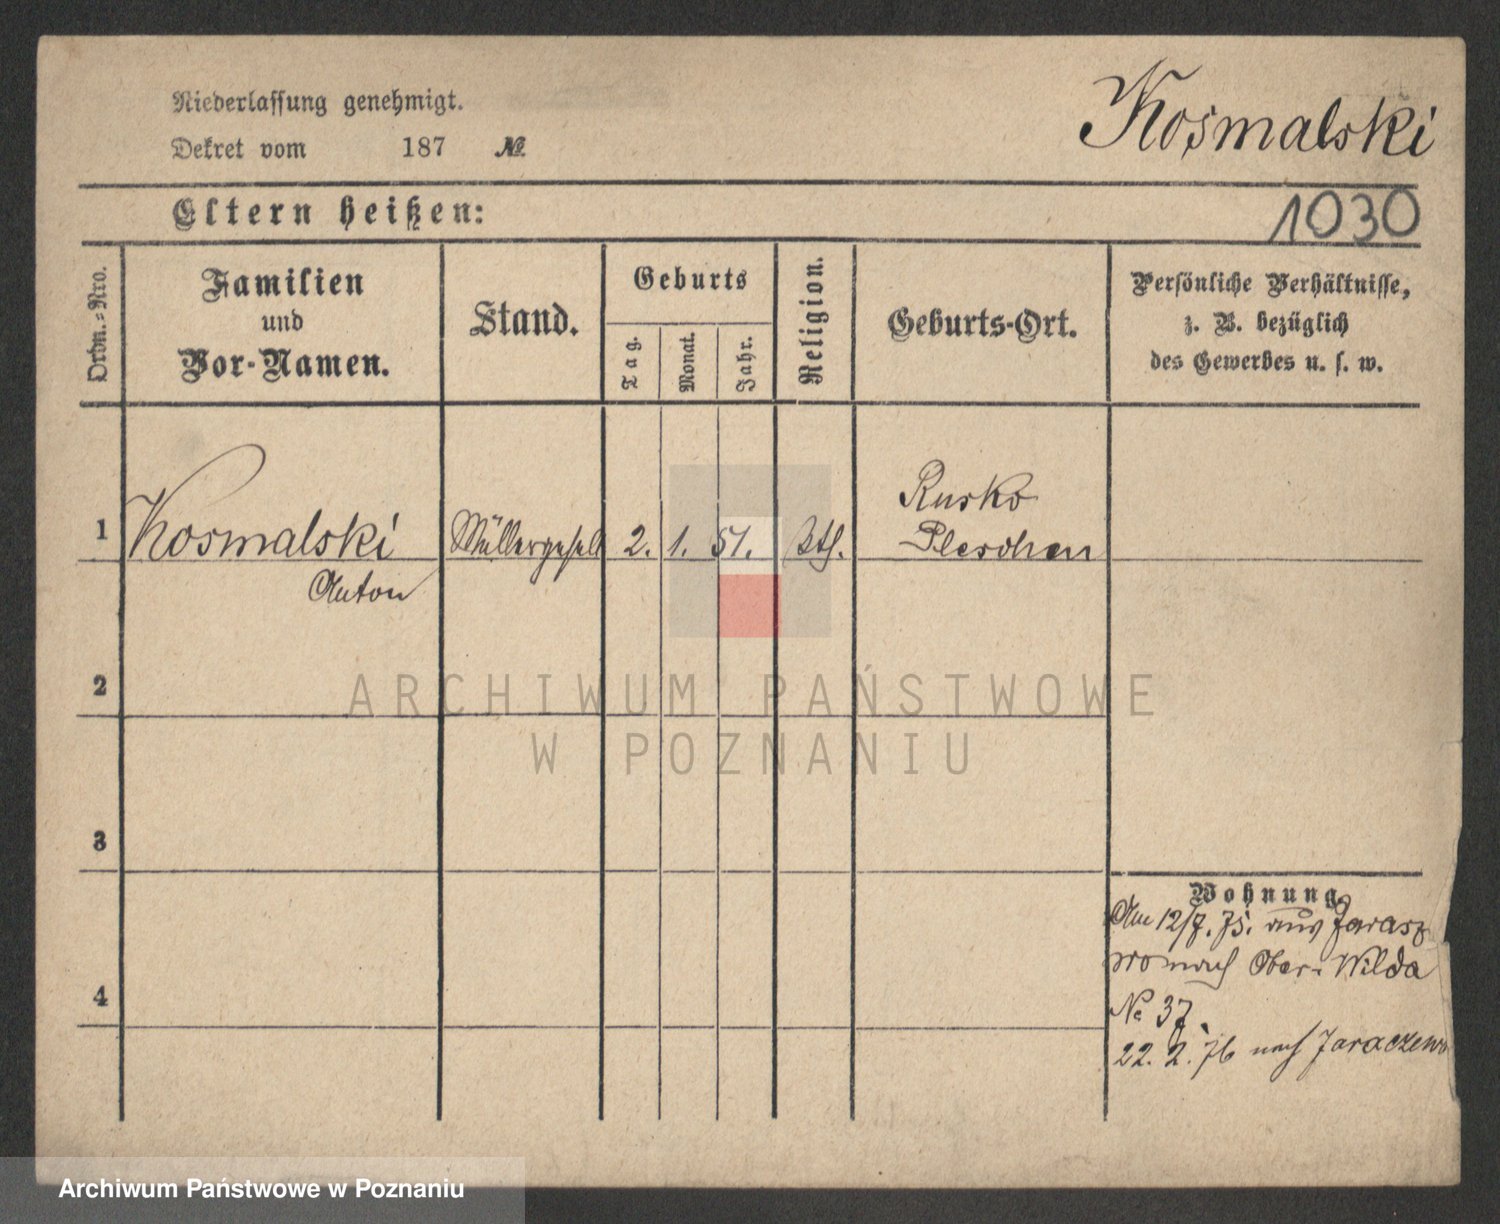 Niederlassung genehmigt.
Dekret vom 187 №
Kosmalski
Eltern heißen:
1030
Ordn.-Nro.
Familien
und
Vor-Namen.
Stand.
Geburts
Tag.
Monat.
Jahr.
Religion.
Geburts-Ort.
Persönliche Verhältnisse,
z. B. bezüglich
des Gewerbes u. s. w.
1 Kosmalski Müllergesell 2. 1. 51. kth. Rusko
Pleschen
Anton
2
3
4
Wohnung.
Am 12/7. 75. aus Jarasz
wo nach Ober-Wilda
№ 37.
22. 2. 76 nach Jaraczewo
ARCHIWUM PAŃSTWOWE
W POZNANIU
Archiwum Państwowe w Poznaniu